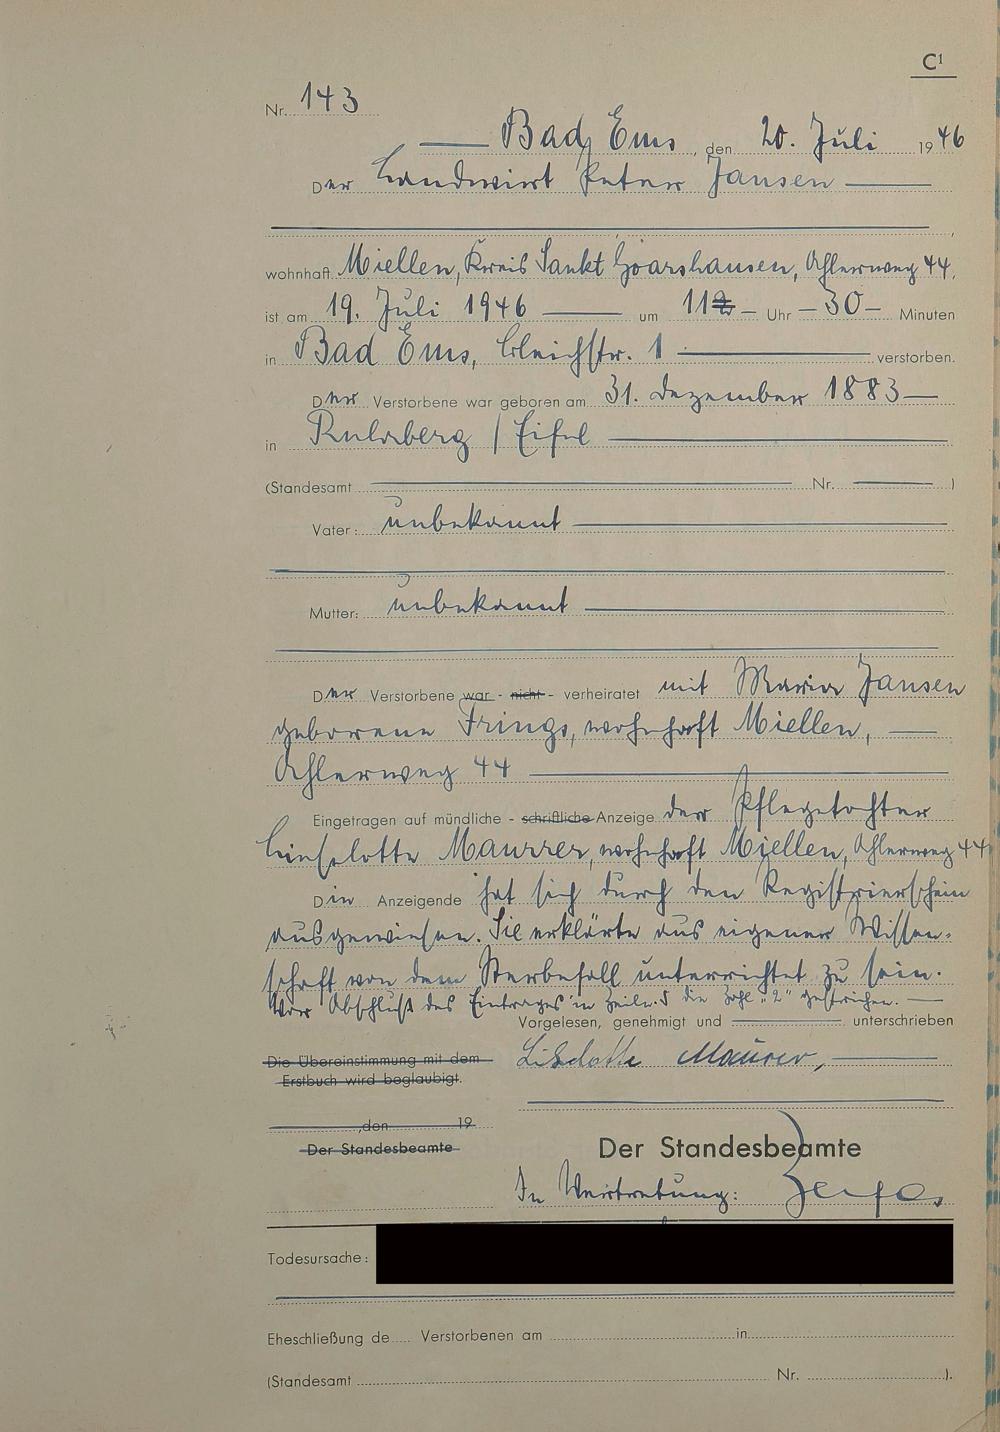 C¹
Nr. 143
Bad Ems, den 20. Juli 1946
Der Landwirt Peter Jansen
wohnhaft Miellen, Kreis Sankt Goarshausen, Ahlerweg 44,
ist am 19. Juli 1946 um 112 Uhr 30 Minuten
in Bad Ems, Bleichstr. 1 verstorben.
Der Verstorbene war geboren am 31. Dezember 1883
in Rurberg / Eifel
(Standesamt Nr. )
Vater: unbekannt
Mutter: unbekannt
Der Verstorbene war - nicht - verheiratet mit Maria Jansen
geborene Frings, wohnhaft Miellen,
Ahlerweg 44
Eingetragen auf mündliche - schriftliche Anzeige der Pflegetochter
Lieselotte Maurer, wohnhaft Miellen, Ahlerweg 44
Die Anzeigende hat sich durch den Registrierschein
ausgewiesen. Sie erklärte aus eigener Wissen-
schaft von dem Sterbefall unterrichtet zu sein.
Vor Abschluß des Eintrages in Zeile 5 die Zahl „2" gestrichen.
Vorgelesen, genehmigt und unterschrieben
Liselotte Maurer,
Die Übereinstimmung mit dem
Erstbuch wird beglaubigt.
, den 19
Der Standesbeamte
Der Standesbeamte
In Vertretung:
Todesursache:
Eheschließung de Verstorbenen am in
(Standesamt Nr. ).